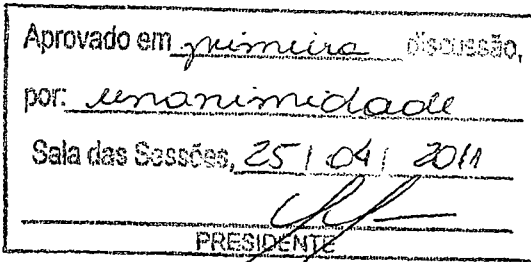 Aprovado em primeira discussão,
por: unanimidade
Sala das Sessões, 25 / 04 / 2011
PRESIDENTE